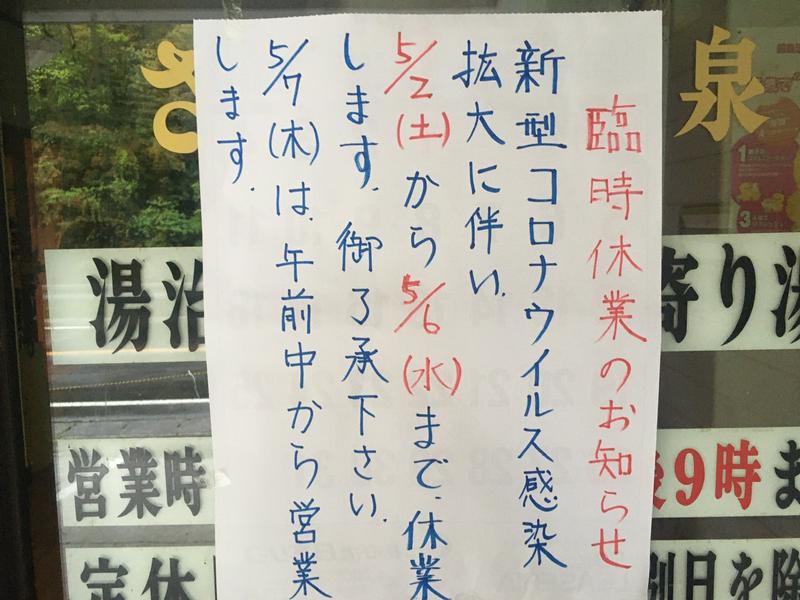 臨時休業のお知らせ
新型コロナウイルス感染
拡大に伴い、
5/2(土)から5/6(水)まで、休業
します。御了承下さい。
5/7(木)は、午前中から営業
します。
泉
さ
湯治
寄り湯
営業時
後9時ま
定休
別日を除